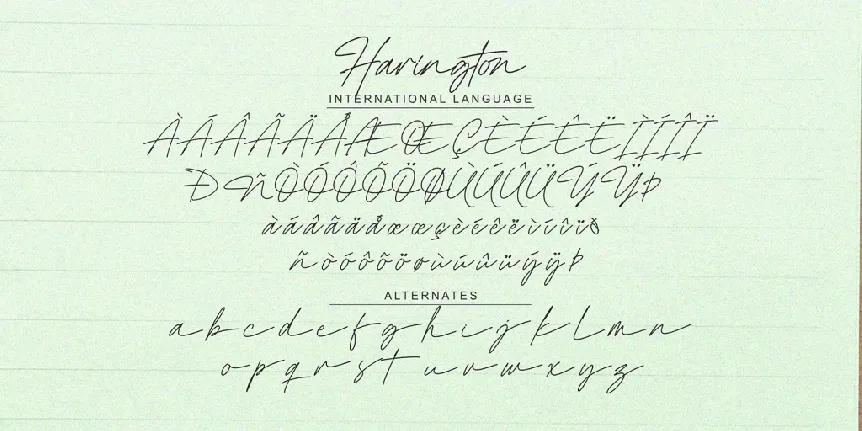 Harington
INTERNATIONAL LANGUAGE
ÀÁÂÃÄÅÆŒÇÈÉÊËÌÍÎÏ
ÐÑÒÓÔÕÖØÙÚÛÜÝŸÞ
àáâãäåæœçèéêëìíîïð
ñòóôõöøùúûüýÿÞ
ALTERNATES
abcdefghijklmn
opqrstuvwxyz